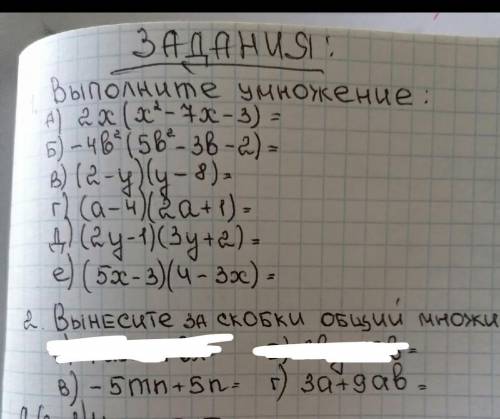 ЗАДАНИЯ:
Выполните умножение:
А) 2x(x²-7x-3)=
Б) -4в²(5в²-3в-2)=
в) (2-y)(y-8)=
г) (a-4)(2a+1)=
д) (2y-1)(3y+2)=
е) (5x-3)(4-3x)=
2. Вынесите за скобки общий множи
в) -5mn+5n= г) 3a+9ab=